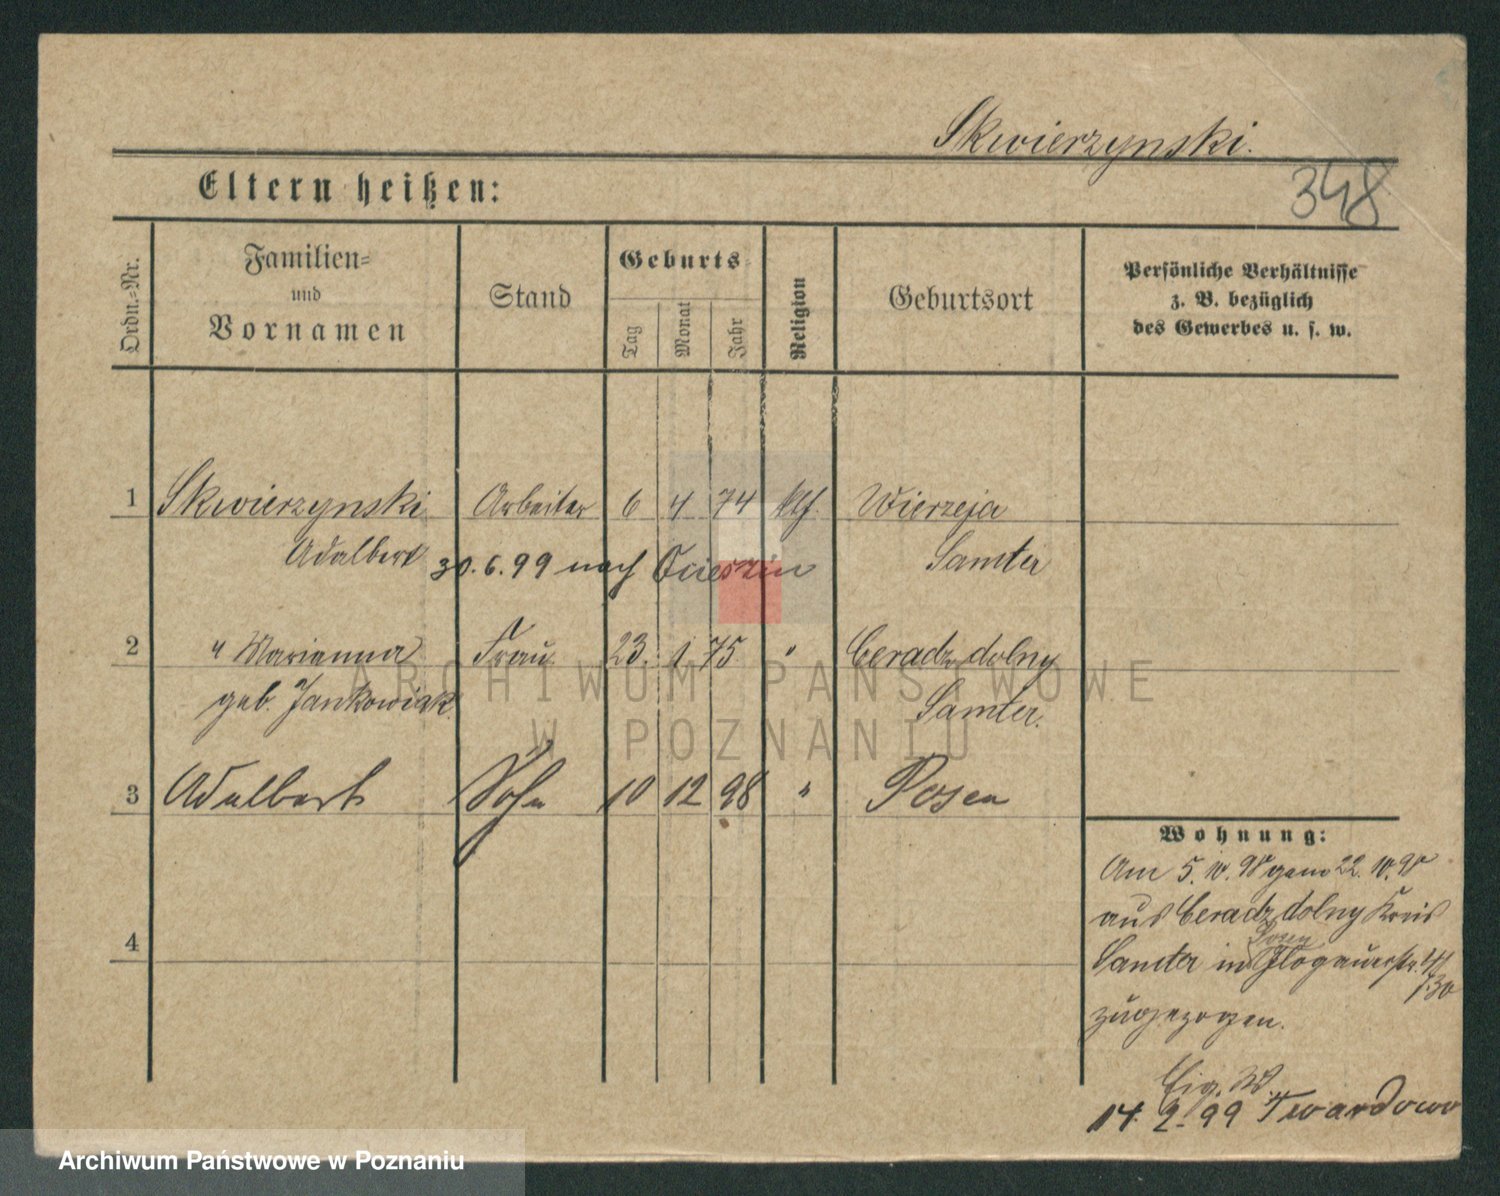 Skwierzynski.
348
Eltern heißen:
Ordn.-Nr.
Familien-
und
Vornamen
Stand
Geburts-
Tag
Monat
Jahr
Religion
Geburtsort
Persönliche Verhältnisse
z. B. bezüglich
des Gewerbes u. s. w.
1 Skwierzynski Arbeiter 6 4 74 klf. Wierzeja
Adalbert 30.6.99 nach Ocieszin Samter
2 " Marianna Frau 23. 1 75. " Ceradz dolny
geb. Jankowiak. Samter.
3 Adalbert Sohn 10 12 98 " Posen
4
Wohnung:
Am 5. 10. 98 gem 22. 10. 98
aus Ceradz dolny Kreis
Posen
Samter in Glogauerstr.
zugezogen.
14. 2. 99 Twardowo
ARCHIWUM PAŃSTWOWE
W POZNANIU
Archiwum Państwowe w Poznaniu